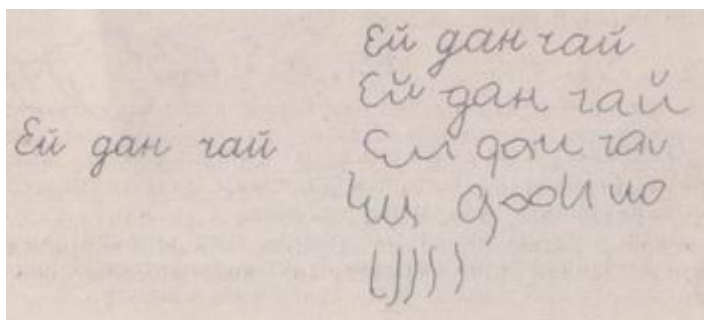 Ей дан чай
Ей дан чай
Ей дан чай
Ей дан чай